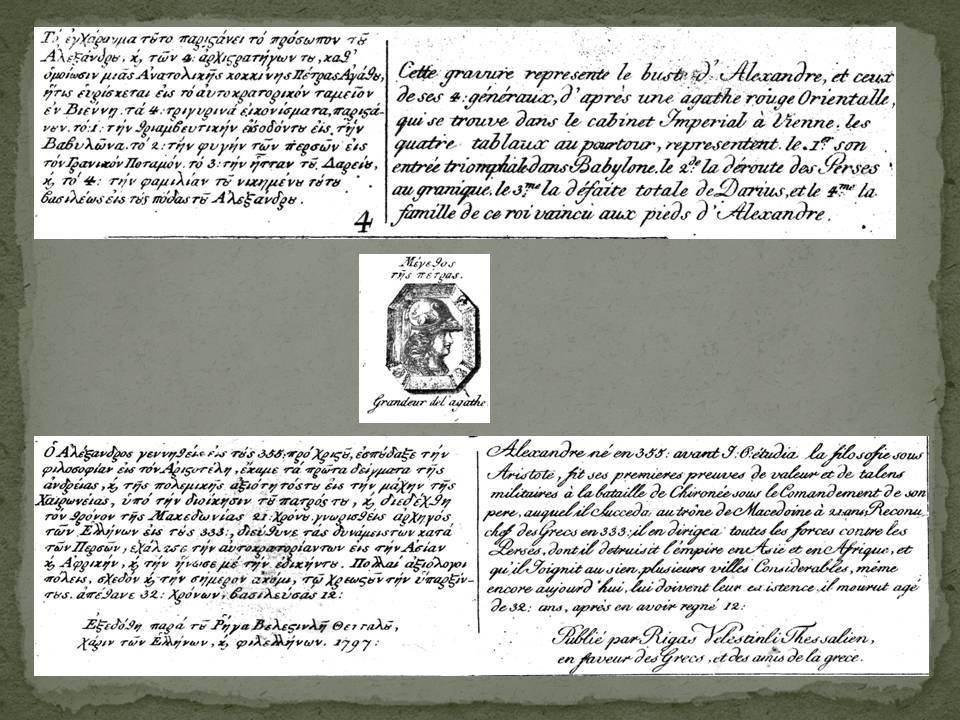 Τό ἐγχάραγμα τȣ͂το παριϛάνει τό πρόσωπον τȣ͂
Ἀλεξάνδρȣ, ϗ τῶν 4: ἀρχιϛρατήγων τȣ, καθ'
ὁμοίωσιν μιᾶς Ἀνατολικῆς κοκκίνης Πέτρας Ἀγάθȣ,
ἥτις εὑρίσκεται εἰς τό αυτοκρατορικόν ταμεῖον
ἐν Βιέννῃ. τά 4: τριγυρινά εἰκονίσματα, παριϛά-
νȣν. τό: 1: τήν θριαμβευτικήν εἰσοδόν τȣ εἰς τήν
Βαβυλῶνα. τό 2: τήν φυγήν τῶν περσῶν εἰς
τόν Γρανικόν Ποταμόν. τό 3: τήν ἧτταν τȣ͂ Δαρείȣ,
ϗ τό 4: τήν φαμιλίαν τȣ͂ νικημένȣ τȣ́τȣ
βασιλέως εἰς τȣ́ς πόδας τȣ͂ Ἀλεξάνδρȣ.
4
Cette gravure represente le buste d'Alexandre, et ceux
de ses 4: généraux, d'après une agathe rouge Orientalle,
qui se trouve dans le cabinet Imperial à Vienne. les
quatre tablaux au pourtour, representent. le 1er son
entrée triomphale dans Babylone. le 2de la déroute des Perses
au granique. le 3me la défaite totale de Darius, et le 4me la
famille de ce roi vaincu aux pieds d'Alexandre.
Μέγεθος
τῆς πέτρας.
Grandeur del'agathe
Ὁ Ἀλέξανδρος γεννηθείς εἰς τȣ́ς 355: πρό Χριϛȣ͂, ἐσπȣ́δαξε τήν
φιλοσοφίαν εἰς τόν Ἀριϛοτέλη, ἔκαμε τά πρῶτα δείγματα τῆς
ἀνδρείας, ϗ τῆς πολεμικῆς ἀξιότητός τȣ εἰς τήν μάχην τῆς
Χαιρωνείας, ὑπό τήν διοίκησιν τȣ͂ πατρός τȣ, ϗ διεδέχθη
τόν θρόνον τῆς Μακεδωνίας 21: Χρονȣ. γνωρισθείς ἀρχηγός
τῶν Ἑλλήνων εἰς τȣ́ς 333:, διεύθυνε τάς δυνάμεις των κατά
τῶν Περσῶν, ἐχάλασε τήν αὐτοκρατορίαν των εἰς τήν Ἀσίαν
ϗ Ἀφρικήν, ϗ τήν ἥνωσε μέ τήν ἐδικήν τȣ. Πολλαί ἀξιόλογοι
πόλεις, σχεδόν ϗ τήν σήμερον ἀκόμι, τῷ χρεωϛȣ͂ν τήν ὕπαρξίν-
τȣς. ἀπέθανε 32: Χρόνων, βασιλεύσας 12:
Ἐξεδόθη παρά τȣ͂ Ῥήγα Βελεϛινλῆ Θετταλȣ͂,
χάριν τῶν Ἑλλήνων, ϗ φιλελλήνων. 1797:
Alexandre né en 355: avant J. C. étudia la filosofie sous
Aristote, fit ses premieres preuves de valeur et de talens
militaires à la bataille de Chironée sous le Comandement de son
pere, auquel il Succeda au trône de Macedoine à 21 ans, Reconu
chef des Grecs en 333: il en dirigea toutes les forces contre les
Perses, dont il detruisit l'émpire en Asie et en Afrique, et
qu'il Joignit au sien. plusieurs villes Considerables, même
encore aujourd'hui, lui doivent leur existence. il mourut agé
de 32: ans, après en avoir regné 12:
Publié par Rigas Velestinli Thessalien,
en faveur des Grecs, et des amis de la grece.